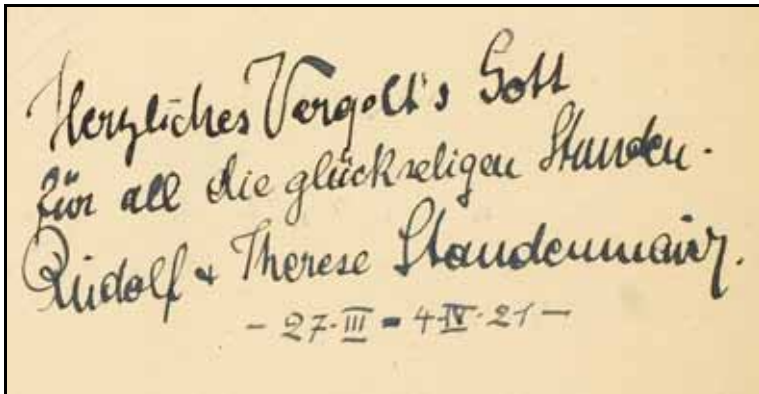 Herzliches Vergelt's Gott
für all die glückseligen Stunden.
Rudolf + Therese Staudenmaier.
- 27·III - 4·IV·21 -